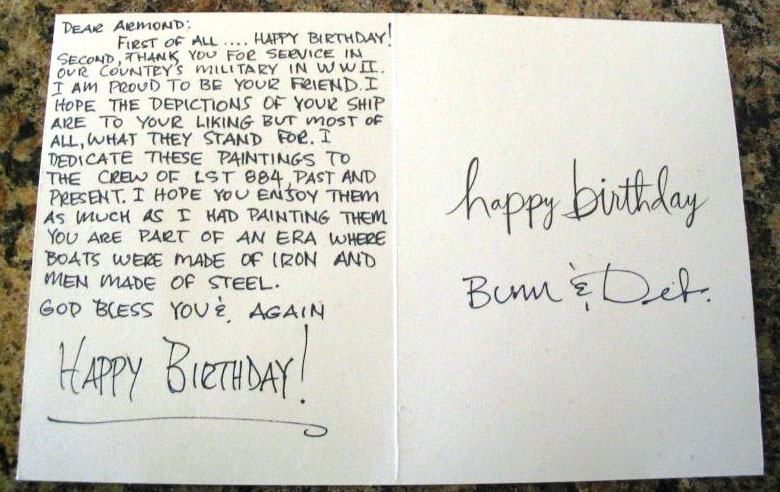 DEAR ARMOND:
FIRST OF ALL .... HAPPY BIRTHDAY!
SECOND, THANK YOU FOR SERVICE IN
OUR COUNTRY'S MILITARY IN WWII.
I AM PROUD TO BE YOUR FRIEND. I
HOPE THE DEPICTIONS OF YOUR SHIP
ARE TO YOUR LIKING BUT MOST OF
ALL, WHAT THEY STAND FOR. I
DEDICATE THESE PAINTINGS TO
THE CREW OF LST 884, PAST AND
PRESENT. I HOPE YOU ENJOY THEM
AS MUCH AS I HAD PAINTING THEM
YOU ARE PART OF AN ERA WHERE
BOATS WERE MADE OF IRON AND
MEN MADE OF STEEL.
GOD BLESS YOU & AGAIN
HAPPY BIRTHDAY!
happy birthday
& Deb.